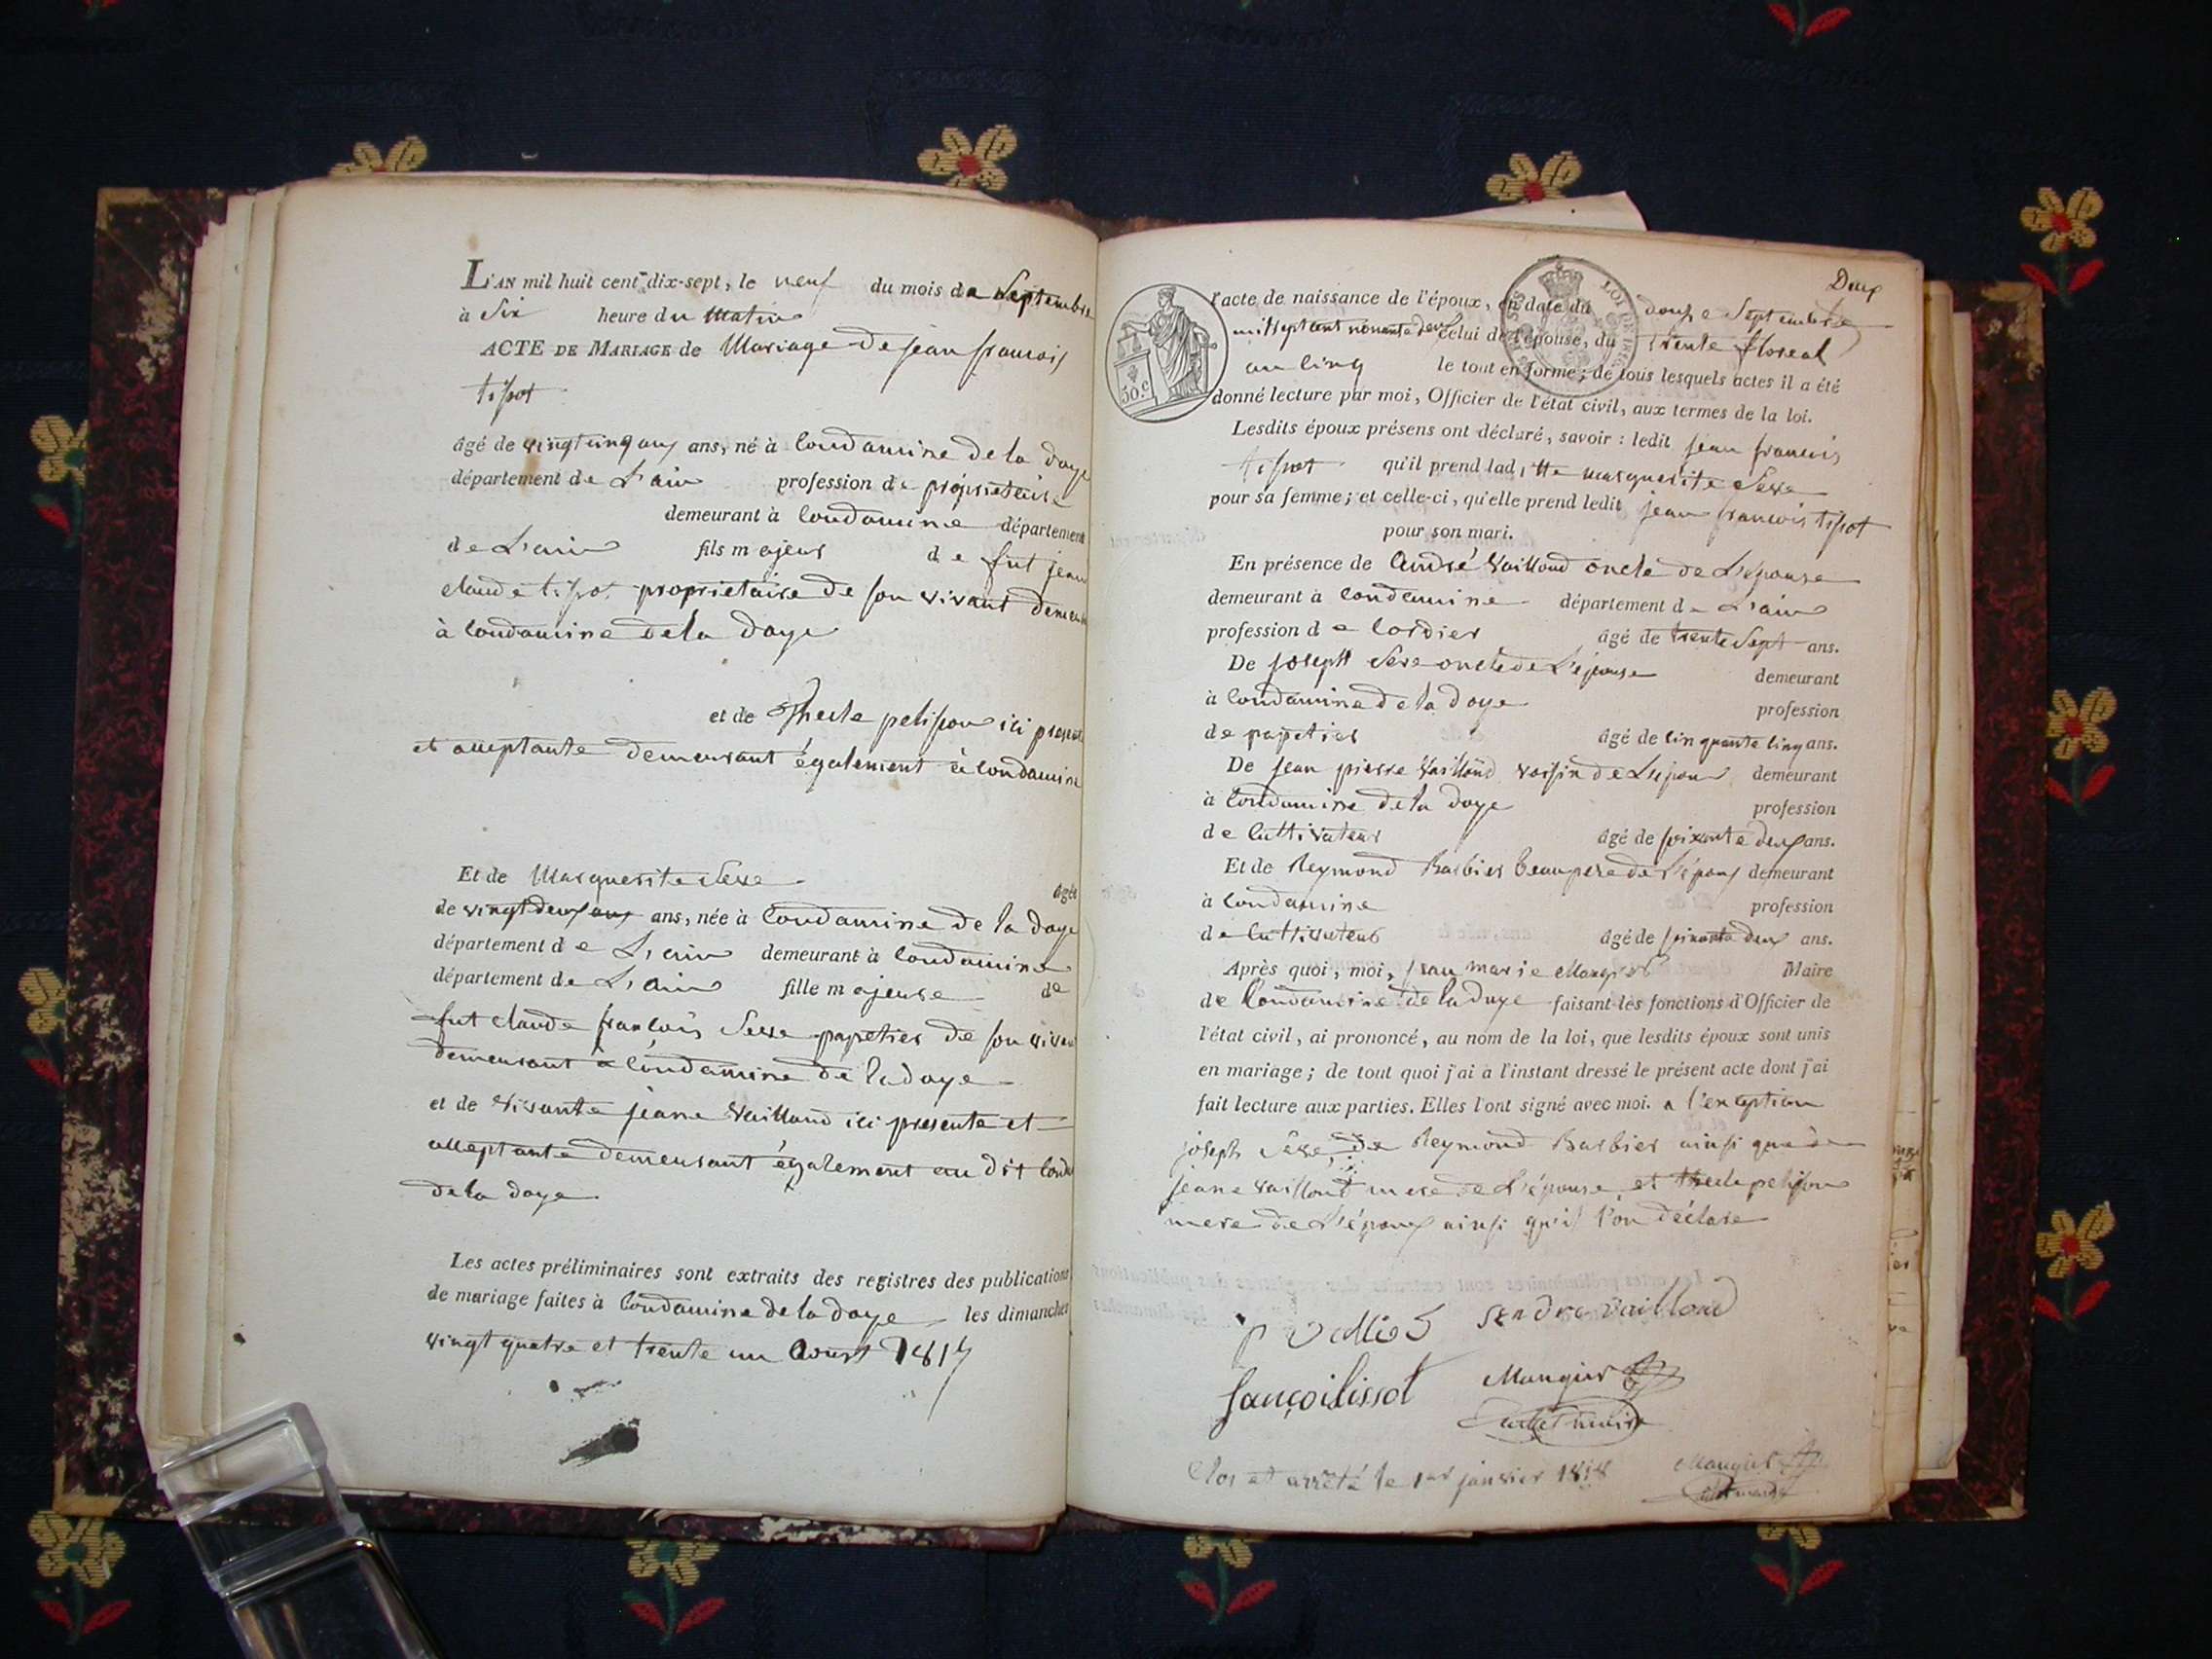 L'AN mil huit cent dix-sept, le neuf du mois de Septembre
à Six heure du Matin
ACTE DE MARIAGE de Mariage de jean francois
tissot
âgé de vingt cinq ans ans, né à Condamine de la doye
département de L'ain profession de propriétaire
demeurant à Condamine département
de L'ain fils majeur de fut jean
claude tissot proprietaire de son vivant
à Condamine de la doye
et de Thecle petisson ici
et acceptante demeurant également à Condamine
Et de Marguerite Serre âgée
de vingt deux ans ans, née à Condamine de la doye
département de L'ain demeurant à Condamine
département de L'ain fille majeure de
fut claude francois Serre papetier de son
demeurant a Condamine de la doye
et de vivante jeane Vailloud ici presente et
acceptante demeurant également au dit
de la doye
Les actes préliminaires sont extraits des registres des publications
de mariage faites à Condamine de la doye les dimanches
vingt quatre et trente un Aoust 1817
Deux
l'acte de naissance de l'époux, en date du douze Septembre
mil sept cent nonante deux celui de l'épouse, du trente floreal
an cinq le tout en forme; de tous lesquels actes il a été
donné lecture par moi, Officier de l'état civil, aux termes de la loi.
Lesdits époux présens ont déclaré, savoir : ledit jean francois
tissot qu'il prend ladite marguerite Serre
pour sa femme; et celle-ci, qu'elle prend ledit jean francois tissot
pour son mari.
En présence de André Vailloud oncle de L'épouse
demeurant à Condamine département de L'ain
profession de Cordier âgé de trente Sept ans.
De joseph Sere oncle de L'épouse demeurant
à Condamine de la doye profession
de papetier âgé de Cinquante Cinq ans.
De jean pierre Vailloud voisin de demeurant
à Condamine de la doye profession
de Cultivateur âgé de soixante deux ans.
Et de Reymond Barbier beaupere de l'époux demeurant
à Condamine profession
de Cultivateur âgé de soixante deux ans.
Après quoi, moi, jean marie Maugier Maire
de Condamine de la doye faisant les fonctions d'Officier de
l'état civil, ai prononcé, au nom de la loi, que lesdits époux sont unis
en mariage; de tout quoi j'ai à l'instant dressé le présent acte dont j'ai
fait lecture aux parties. Elles l'ont signé avec moi. a l'exception
joseph Sere, de Reymond Barbier ainsi que de
jeane vailloud mere de L'épouse et thecle petisson
mere de L'époux ainsi qu'il l'on déclare
50.c
LOI DE
Vailloud
françoitissot Maugier
maire
Clos et arrêté le 1er janvier 1818 Maugier